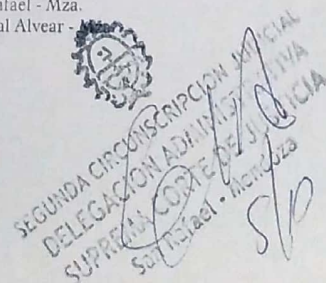 fael - Mza.
al Alvear - Mza
SEGUNDA CIRCUNSCRIPCION JUDICIAL
DELEGACION ADMINISTRATIVA
SUPREMA CORTE DE JUSTICIA
San Rafael - Mendoza
S/D